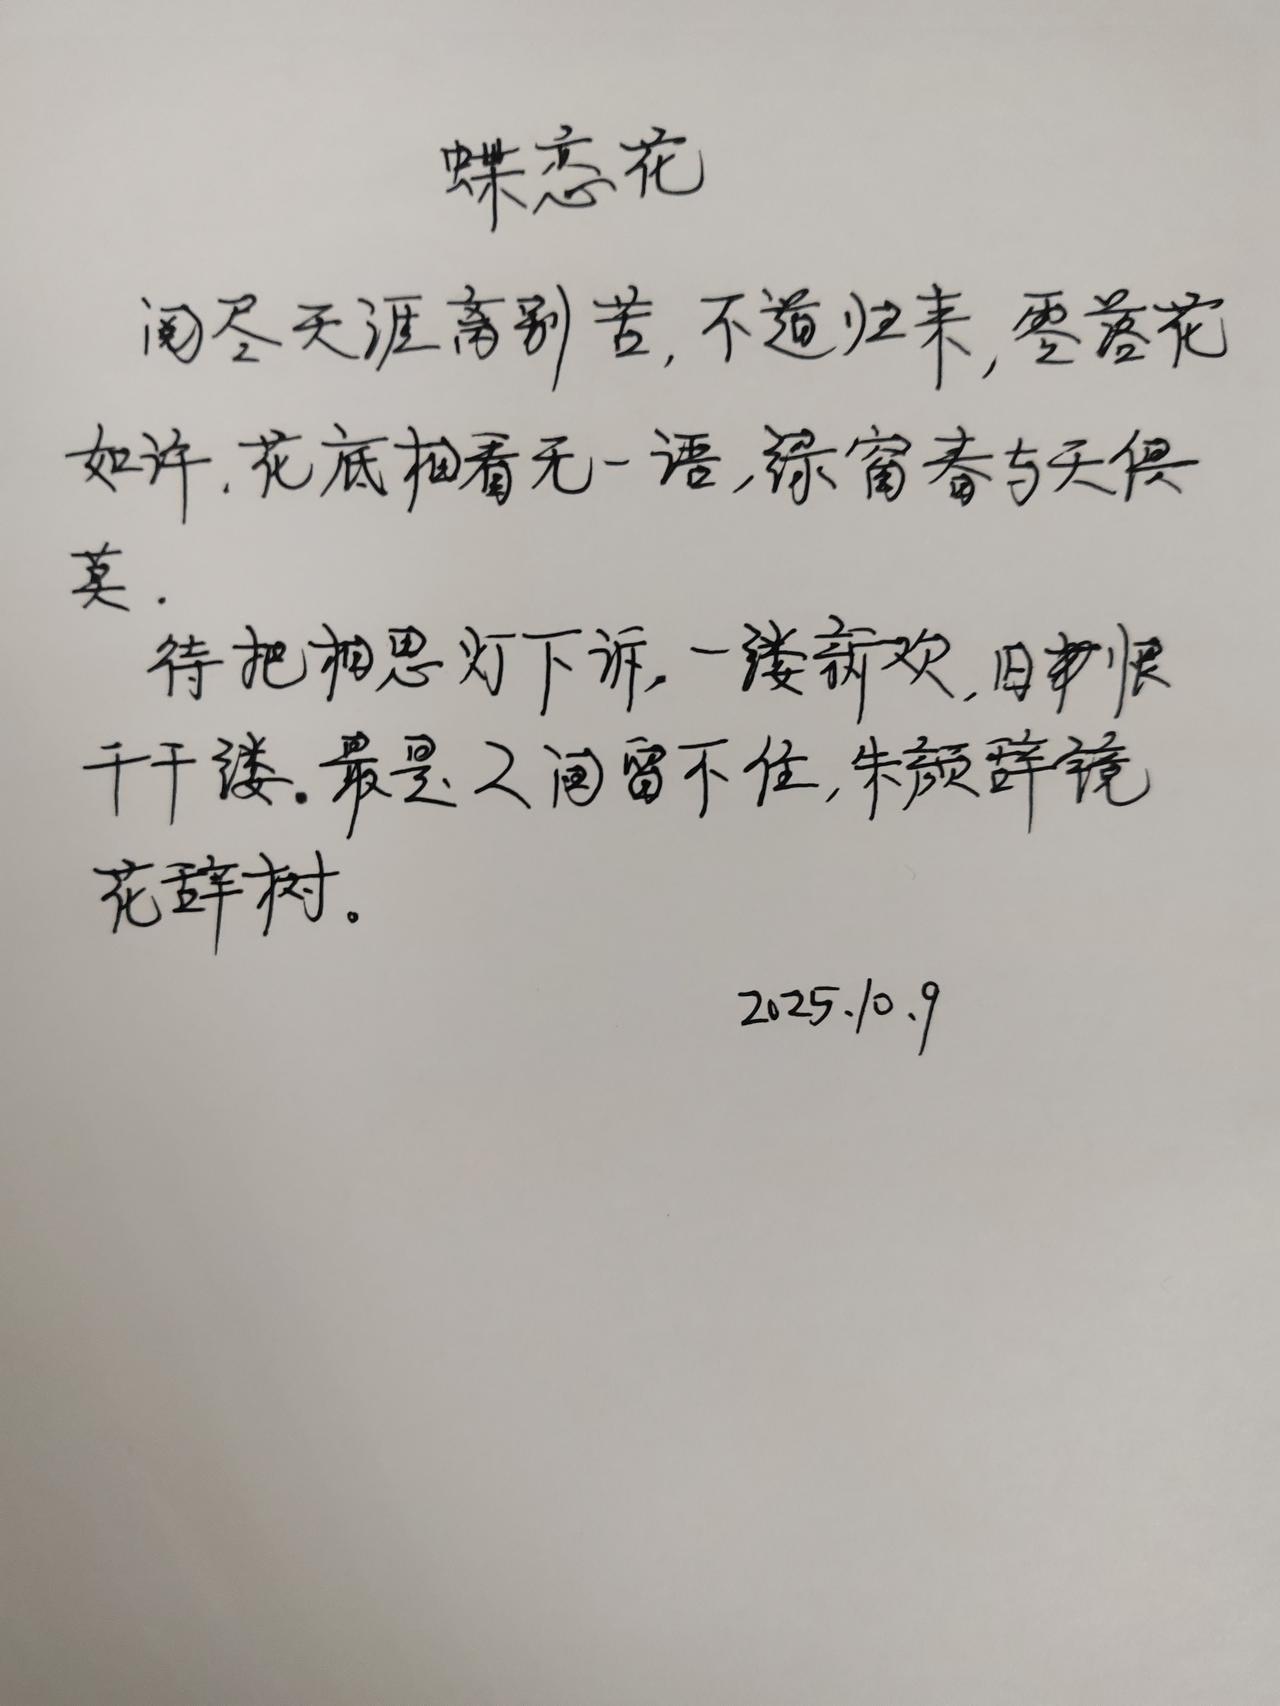 蝶恋花
阅尽天涯离别苦,不道归来,零落花
如许.花底相看无一语,绿窗春与天俱
莫.
待把相思灯下诉.一缕新欢,旧恨
千千缕.最是人间留不住,朱颜辞镜
花辞树。
2025.10.9